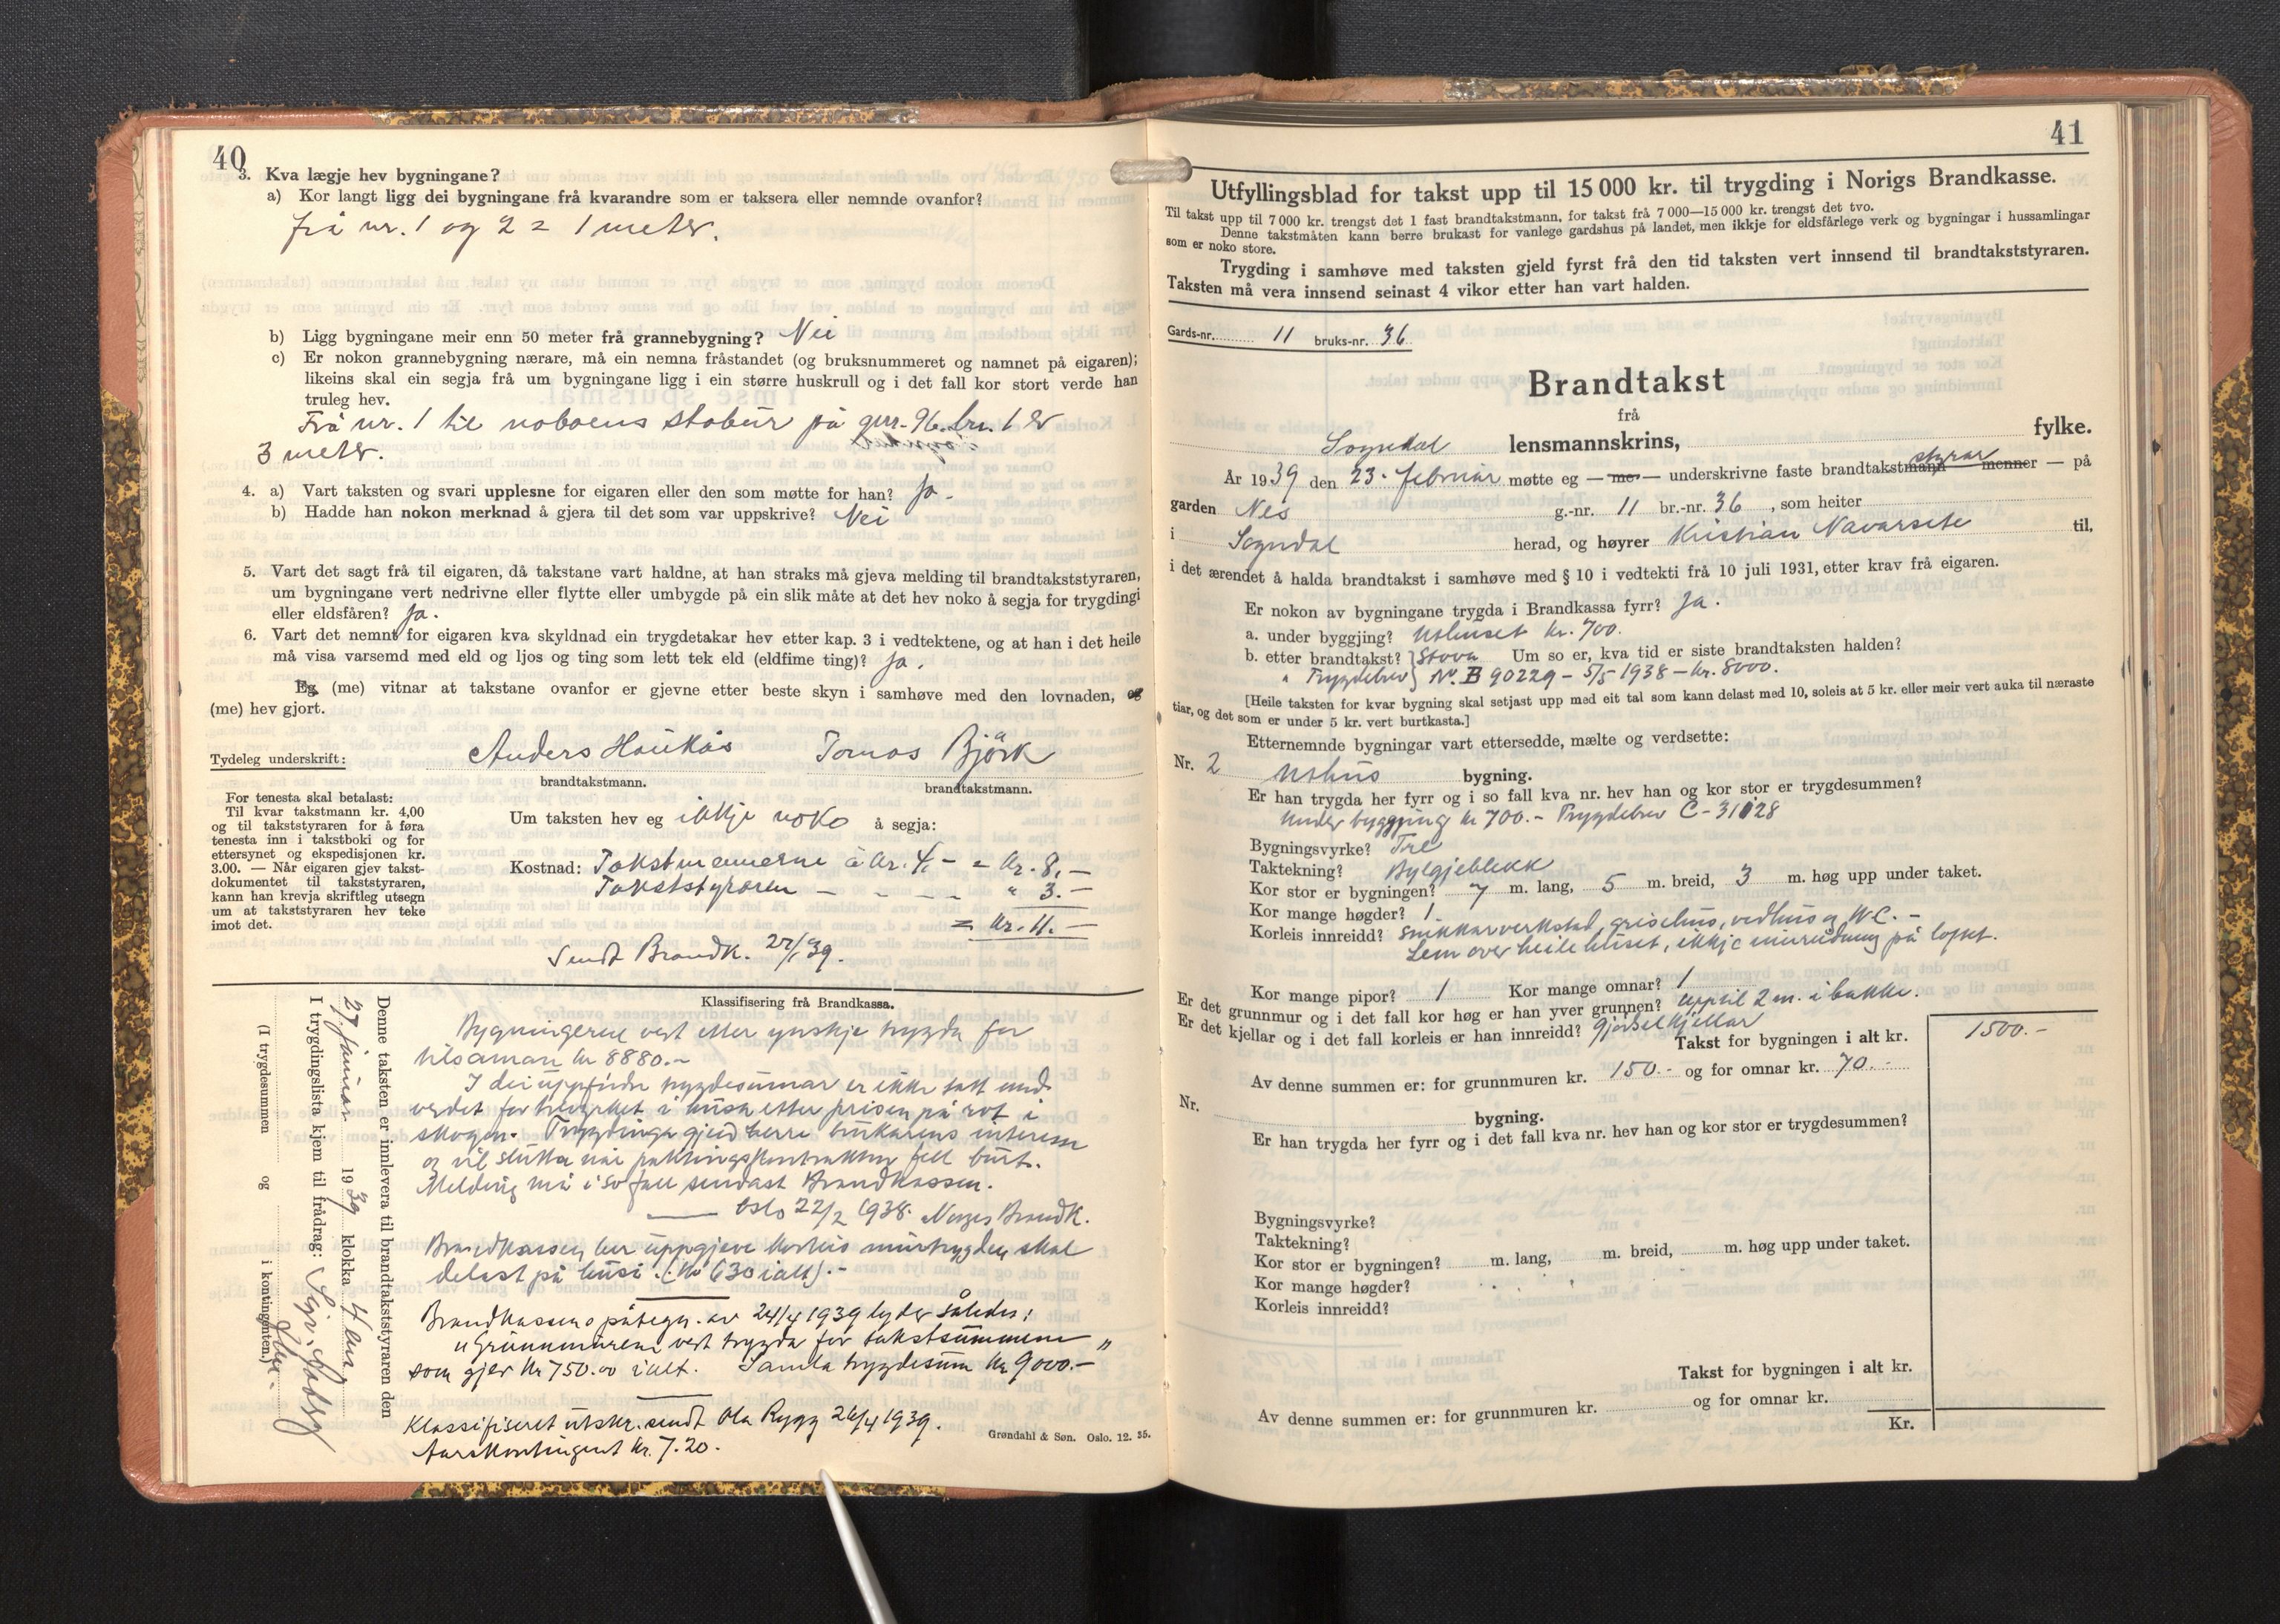 40
3. Kva lægje hev bygningane?
a) Kor langt ligg dei bygningane frå kvarandre som er taksera eller nemnde ovanfor?
frå nr. 1 og 2 = 1 meter.
b) Ligg bygningane meir enn 50 meter frå grannebygning? Nei
c) Er nokon grannebygning nærare, må ein nemna fråstandet (og bruksnummeret og namnet på eigaren);
likeins skal ein segja frå um bygningane ligg i ein større huskrull og i det fall kor stort verde han
truleg hev.
Frå nr. 1 til naboens stabur på gnr. 96. br. 1 er
3 meter.
4. a) Vart taksten og svari upplesne for eigaren eller den som møtte for han? Ja.
b) Hadde han nokon merknad å gjera til det som var uppskrive? Nei
5. Vart det sagt frå til eigaren, då takstane vart haldne, at han straks må gjeva melding til brandtakststyraren,
um bygningane vert nedrivne eller flytte eller umbygde på ein slik måte at det hev noko å segja for trygdingi
eller eldsfåren? Ja.
6. Vart det nemnt for eigaren kva skyldnad ein trygdetakar hev etter kap. 3 i vedtektene, og at han i det heile
må visa varsemd med eld og ljos og ting som lett tek eld (eldfime ting)? Ja.
Eg (me) vitnar at takstane ovanfor er gjevne etter beste skyn i samhøve med den lovnaden, eg
(me) hev gjort.
Tydeleg underskrift: Anders Haukås Tomas Björk
brandtakstmann. brandtakstmann.
For tenesta skal betalast:
Til kvar takstmann kr. 4,00
og til takststyraren for å føra
tenesta inn i takstboki og for
ettersynet og ekspedisjonen kr.
3.00. — Når eigaren gjev takst-
dokumentet til takststyraren,
kann han krevja skriftleg utsegn
um at takststyraren hev teke
imot det.
Um taksten hev eg ikkje noko å segja:
Kostnad: Takstmennerne à kr. 4,- = kr. 8,-
Takststyraren - - - - " 3.-
= kr. 11.-
Sendt Brandk. 27/1 39.
Klassifisering frå Brandkassa.
Bygningerne vert etter ynskje trygda for
tilsaman kr 8880.-
I dei uppførde trygdesumar er ikke tatt med
verdet for trevyrket i husa etter prisen på rot i
skogen. Trygdinga gjeld berre brukarens interesse
og vil slutta når paktingskontrakten fell burt.
Melding må i so fall sendast Brandkassen.
Oslo 22/2 1938. Norges Brandk.
Brandkassen ber uppgjeve korleis murtrygden skal
delast på husi. (kr 630 i alt).-
Brandkassens påtegn. av 24/4 1939 lyder således:
"Grunnmurene vert trygda for takstsummene"
som gjer kr 750.00 i alt. Samla trygdesum kr 9000.-
Klassifiseret utskr. sendt Ola Rygg 26/4 1939.
Aarskontingent kr. 7.20.
Grøndahl & Søn. Oslo. 12. 35.
Denne taksten er innlevera til brandtakststyraren den
27. januar 1939 klokka 4 em.
I trygdingslista kjem til frådrag:
(I trygdesummen og i kontingenten.)
41
Utfyllingsblad for takst upp til 15 000 kr. til trygding i Norigs Brandkasse.
Til takst upp til 7 000 kr. trengst det 1 fast brandtakstmann, for takst frå 7 000—15 000 kr. trengst det tvo.
Denne takstmåten kann berre brukast for vanlege gardshus på landet, men ikkje for eldsfårlege verk og bygningar i hussamlingar
som er noko store.
Trygding i samhøve med taksten gjeld fyrst frå den tid taksten vert innsend til brandtakststyraren.
Taksten må vera innsend seinast 4 vikor etter han vart halden.
Gards-nr. 11 bruks-nr. 36
Brandtakst
frå
Sogndal lensmannskrins, fylke.
År 1939 den 23. februar møtte eg — me — underskrivne faste brandtakstmann styrar menner — på
garden Nes g.-nr. 11 br.-nr. 36, som heiter
i Sogndal herad, og høyrer Kristian Navarsete til,
i det ærendet å halda brandtakst i samhøve med § 10 i vedtekti frå 10 juli 1931, etter krav frå eigaren.
Er nokon av bygningane trygda i Brandkassa fyrr? Ja.
a. under byggjing? Uthuset kr. 700.
b. etter brandtakst? Stova Um so er, kva tid er siste brandtaksten halden?
" Trygdebrev Nr. B 90229 - 5/5-1938 - kr. 8000.
[Heile taksten for kvar bygning skal setjast upp med eit tal som kann delast med 10, soleis at 5 kr. eller meir vert auka til næraste
tiar, og det som er under 5 kr. vert burtkasta.]
Etternemnde bygningar vart ettersedde, mælte og verdsette:
Nr. 2 Uthus bygning.
Er han trygda her fyrr og i so fall kva nr. hev han og kor stor er trygdesummen?
Under bygging kr 700.- Trygdebrev C-31028
Bygningsvyrke? Tre
Taktekning? Bylgjeblekk
Kor stor er bygningen? 7 m. lang, 5 m. breid, 3 m. høg upp under taket.
Kor mange høgder? 1.
Korleis innreidd? Snikkarverkstad, grisehus, vedhus og W.C. -
Lem over heile huset, ikkje innreidning på loftet.
Kor mange pipor? 1 Kor mange omnar? 1
Er det grunnmur og i det fall kor høg er han yver grunnen? upptil 2 m. i bakke.
Er det kjellar og i det fall korleis er han innreidd? Gjødselkjellar
Takst for bygningen i alt kr. 1500.-
Av denne summen er: for grunnmuren kr. 150.- og for omnar kr. 70.-
Nr. bygning.
Er han trygda her fyrr og i det fall kva nr. hev han og kor stor er trygdesummen?
Bygningsvyrke?
Taktekning?
Kor stor er bygningen? m. lang, m. breid, m. høg upp under taket.
Kor mange høgder?
Korleis innreidd?
Takst for bygningen i alt kr.
Av denne summen er: for grunnmuren kr. og for omnar kr.
Kr.